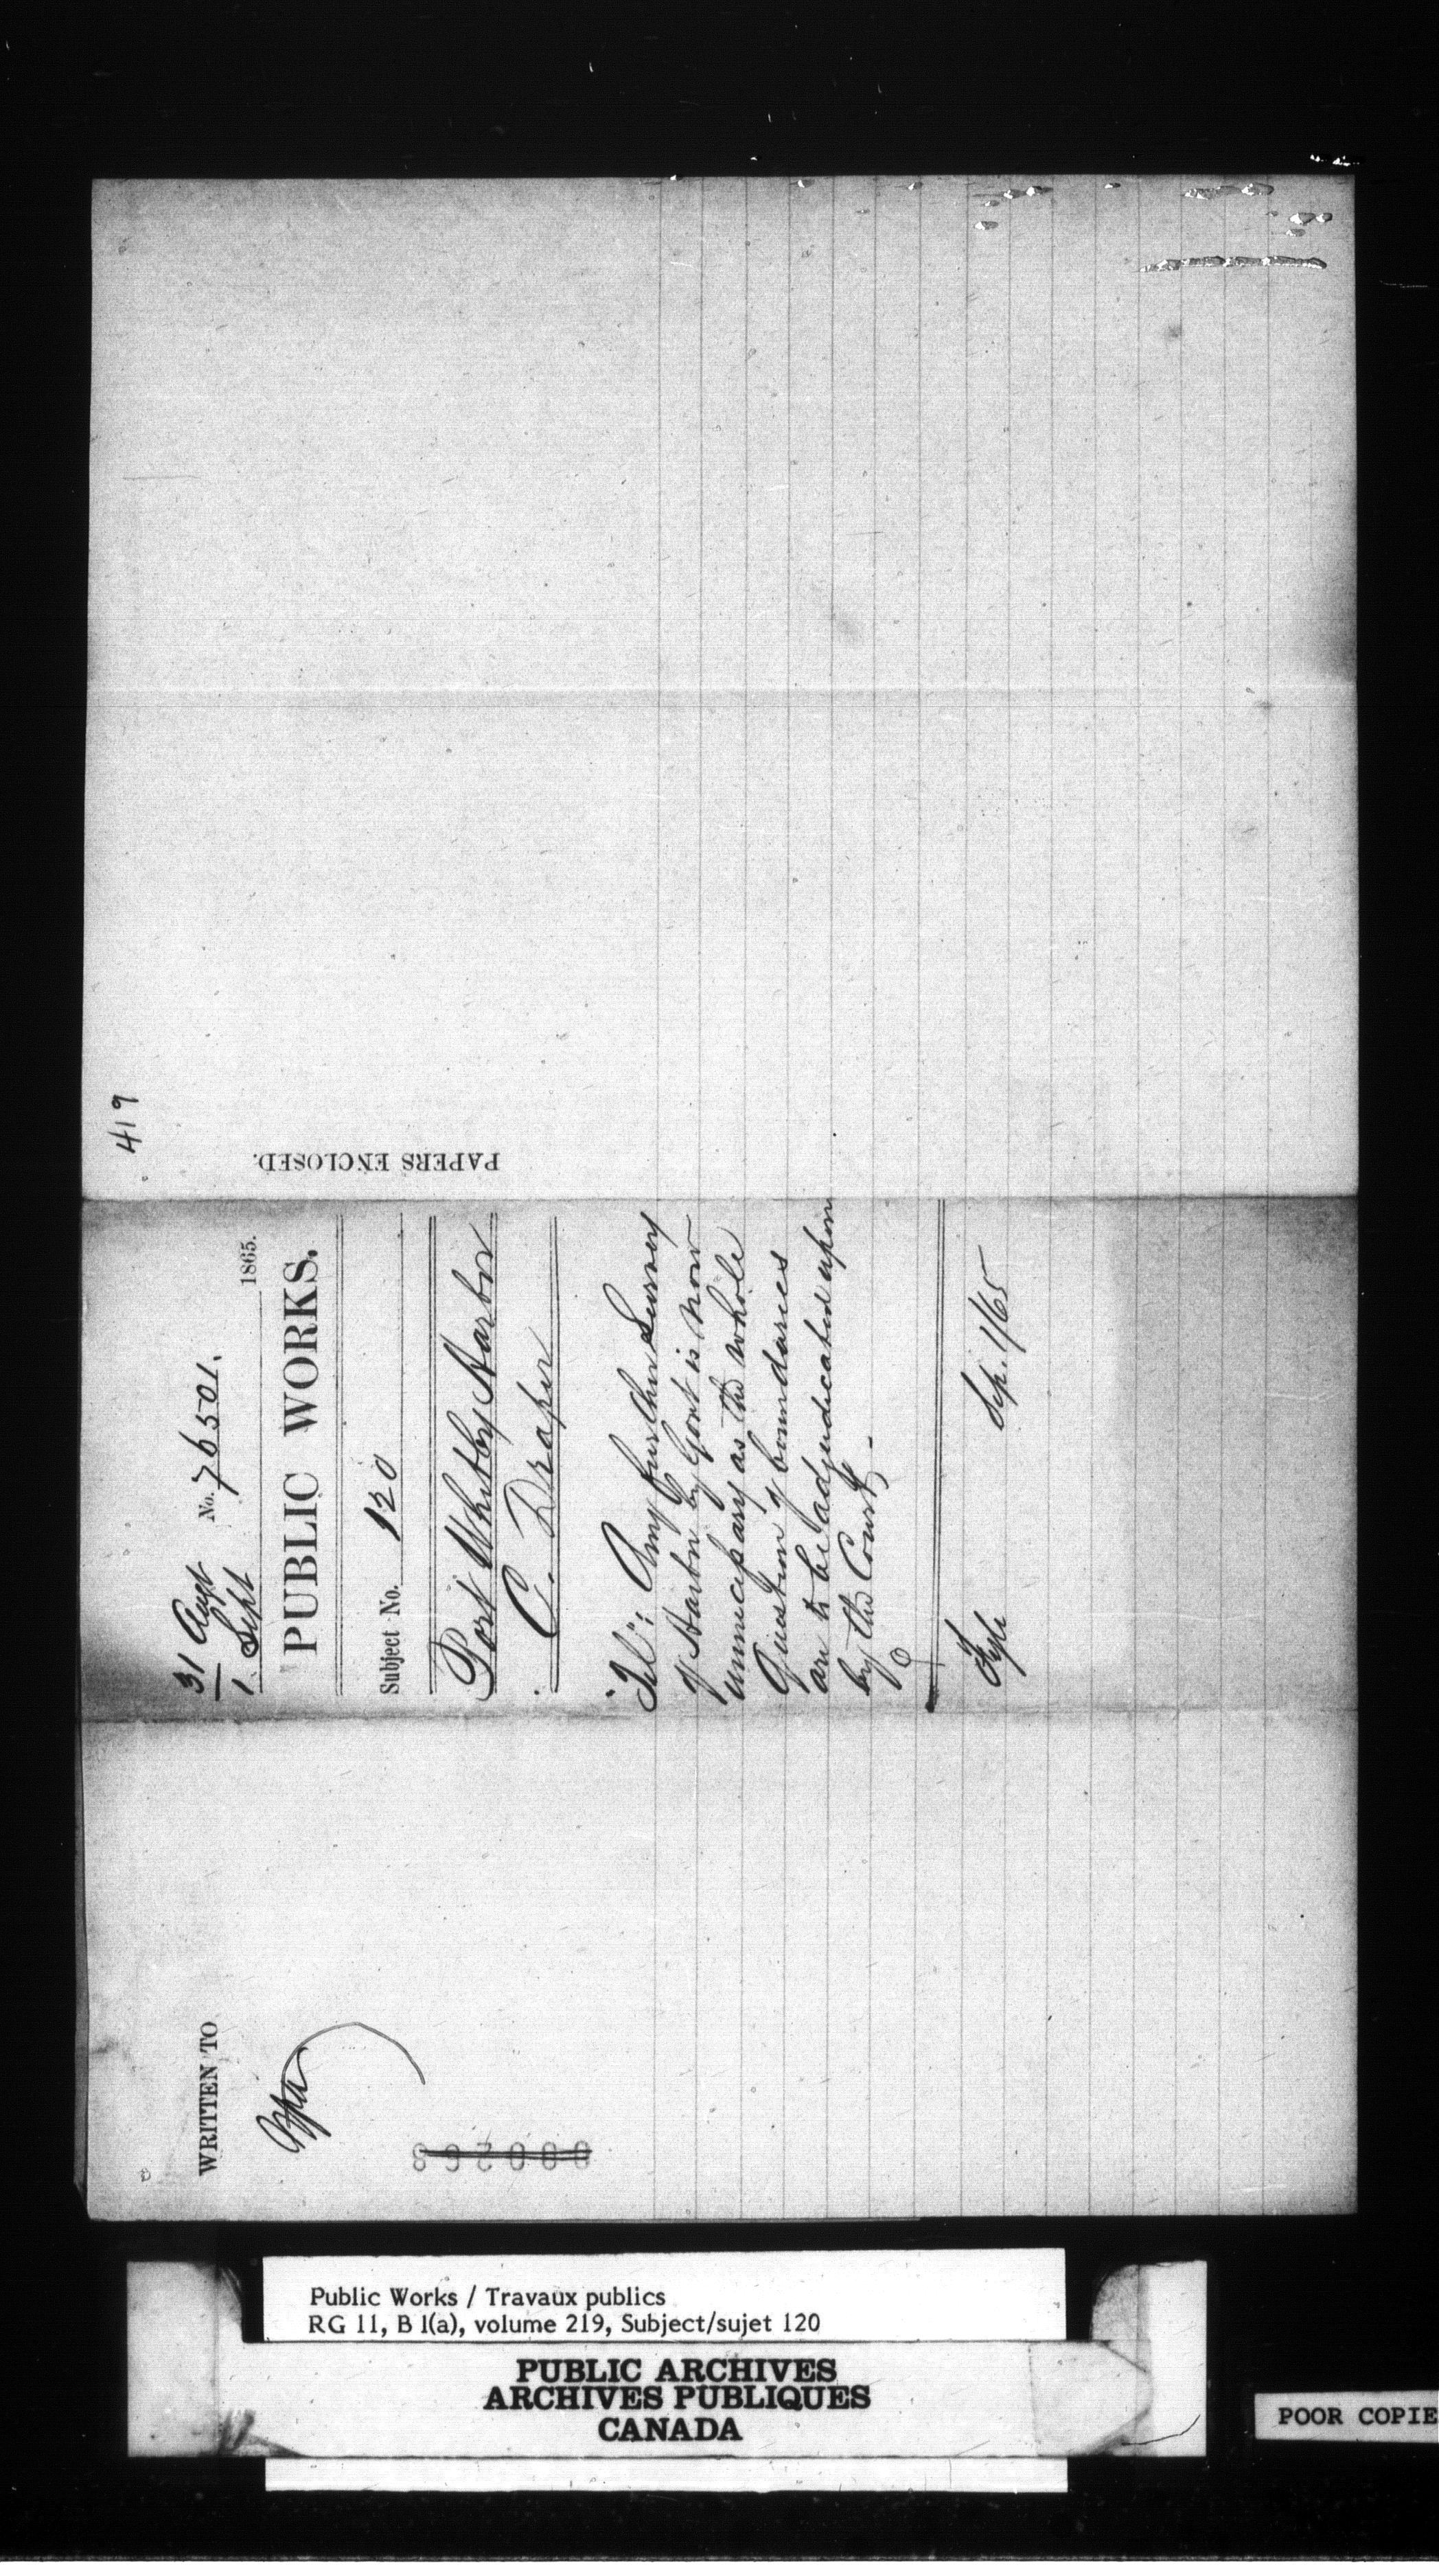 419
PAPERS ENCLOSED.
31 Augt
1. Sept
No. 76501.
1865.
PUBLIC WORKS.
Subject No. 120
Port Whitby Harbor
C. Draper
Tel: Any further Survey
of Harbr by Govt is now
unnecessary as the whole
Question of boundaries
are to be adjudicated upon
by the Court.
Fyle
Sep. 1/65
WRITTEN TO
Public Works / Travaux publics
RG 11, B 1(a), volume 219, Subject/sujet 120
PUBLIC ARCHIVES
ARCHIVES PUBLIQUES
CANADA
POOR COPIE